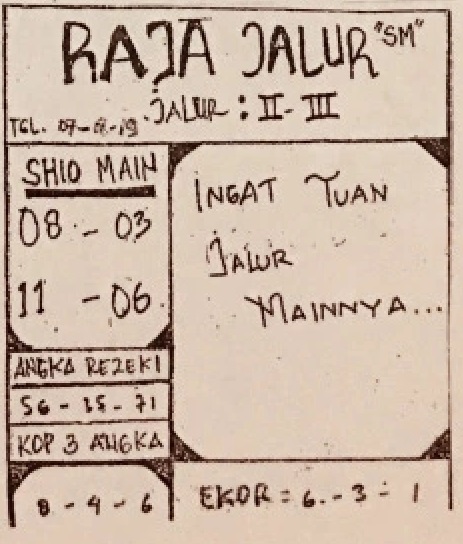 RAJA JALUR "SM"
JALUR : II - III
TGL. 07-8-19
SHIO MAIN
08 - 03
11 - 06
ANGKA REZEKI
56 - 35 - 71
KOP 3 ANGKA
8 - 4 - 6
INGAT TUAN
JALUR
MAINNYA...
EKOR = 6 - 3 - 1